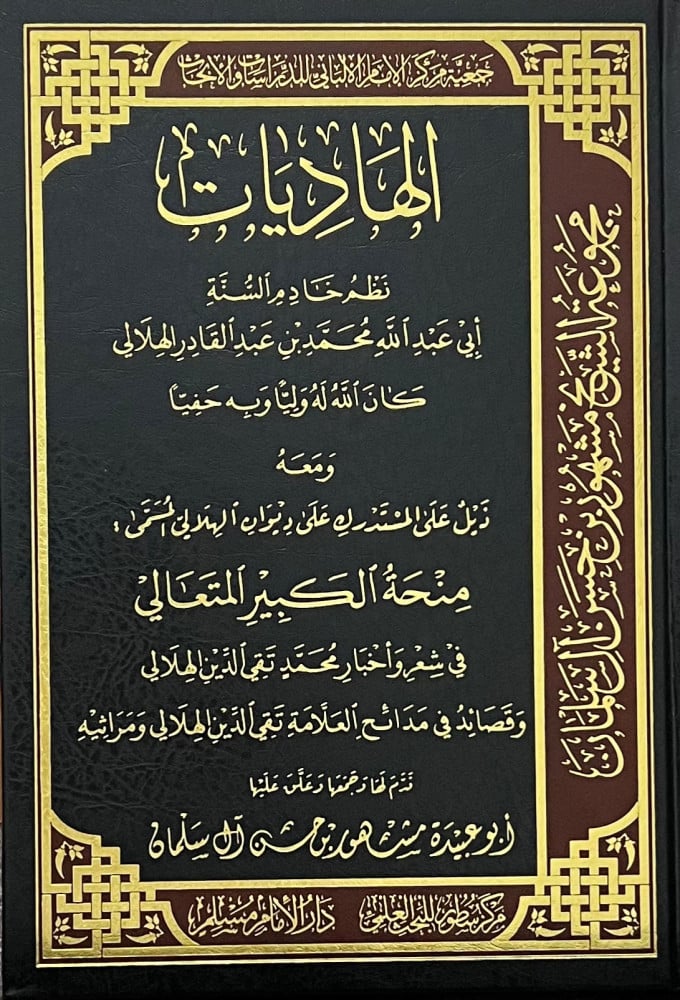 جمعية مركز الإمام الألباني للدراسات والأبحاث
الهَادِيَات
نَظْمُ خَادِمِ السُّنَّةِ
أَبِي عَبْدِ اللَّهِ مُحَمَّدِ بْنِ عَبْدِ القَادِرِ الهِلَالِي
كَانَ اللَّهُ لَهُ وَلِيًّا وَبِهِ حَفِيًّا
وَمَعَهُ
ذَيْلٌ عَلَى المُسْتَدْرِكِ عَلَى دِيْوَانِ الهِلَالِيِّ المُسَمَّى:
مِنْحَةُ الكَبِيْرِ المُتَعَالِي
فِي شِعْرِ وَأَخْبَارِ مُحَمَّدٍ تَقِيِّ الدِّيْنِ الهِلَالِي
وَقَصَائِدُ فِي مَدَائِحِ العَلَّامَةِ تَقِيِّ الدِّيْنِ الهِلَالِي وَمَرَاثِيْهِ
قَدَّمَ لَهَا وَجَمَعَهَا وَعَلَّقَ عَلَيْهَا
أبو عبيدة مشهور بن حسن آل سلمان
مجموعة الشيخ مشهور بن حسن آل سلمان
مركز سطور للبحث العلمي
دار الإمام مسلم